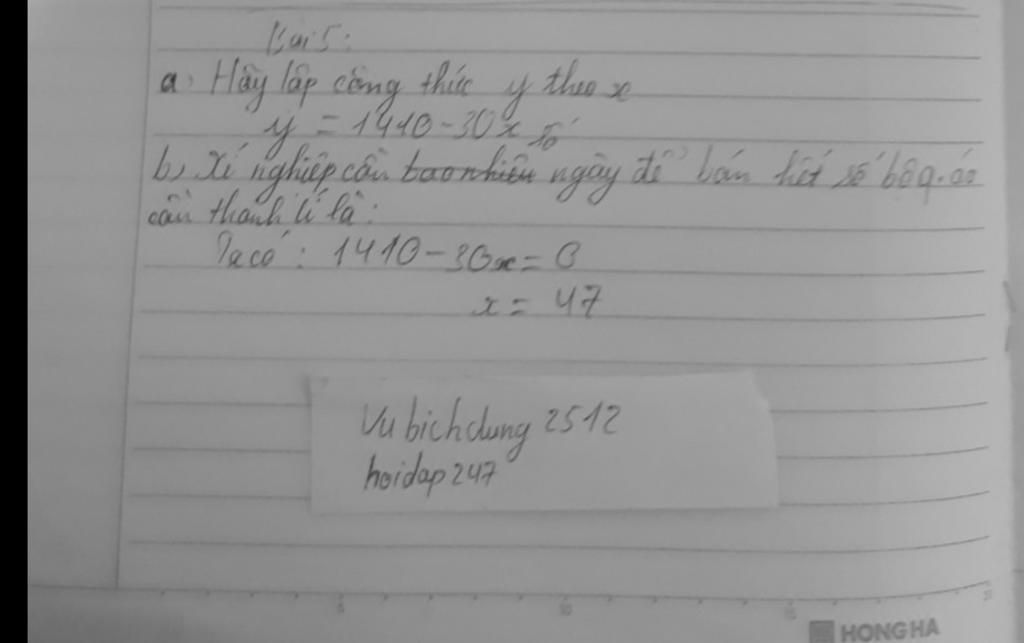 Bài 5:
a, Hãy lập công thức y theo x
y = 1410 - 30x
b, Xí nghiệp cần bao nhiêu ngày để bán hết số bộ q.áo
cần thanh lí là:
Ta có: 1410 - 30x = 0
x = 47
Vu bichdung 2512
hoidap247
HONG HA